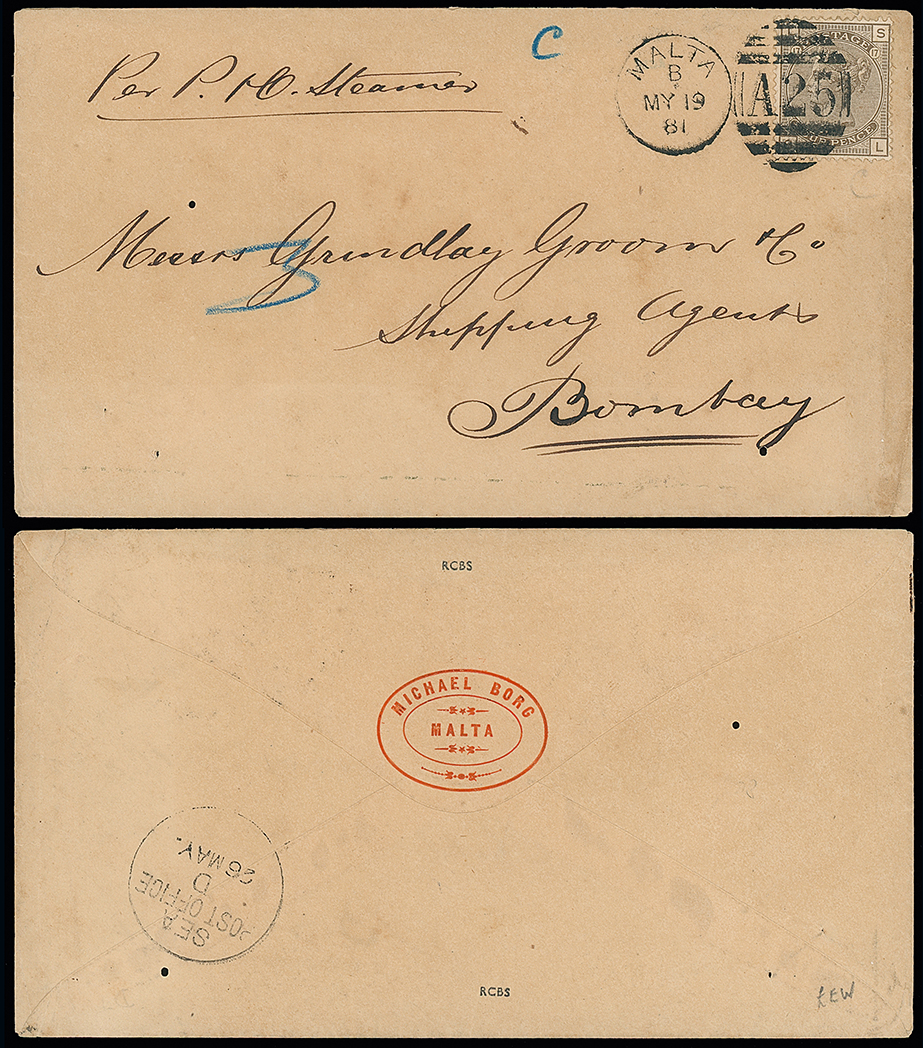 C
Per P. & O. Steamer
MALTA
B
MY 19
81
A25
POSTAGE
17
S
PENCE
L
C
3
Messrs Grindlay Groom & Co
Shipping Agents
Bombay
RCBS
MICHAEL BORG
MALTA
SEA
POST OFFICE
D
26 MAY.
RCBS